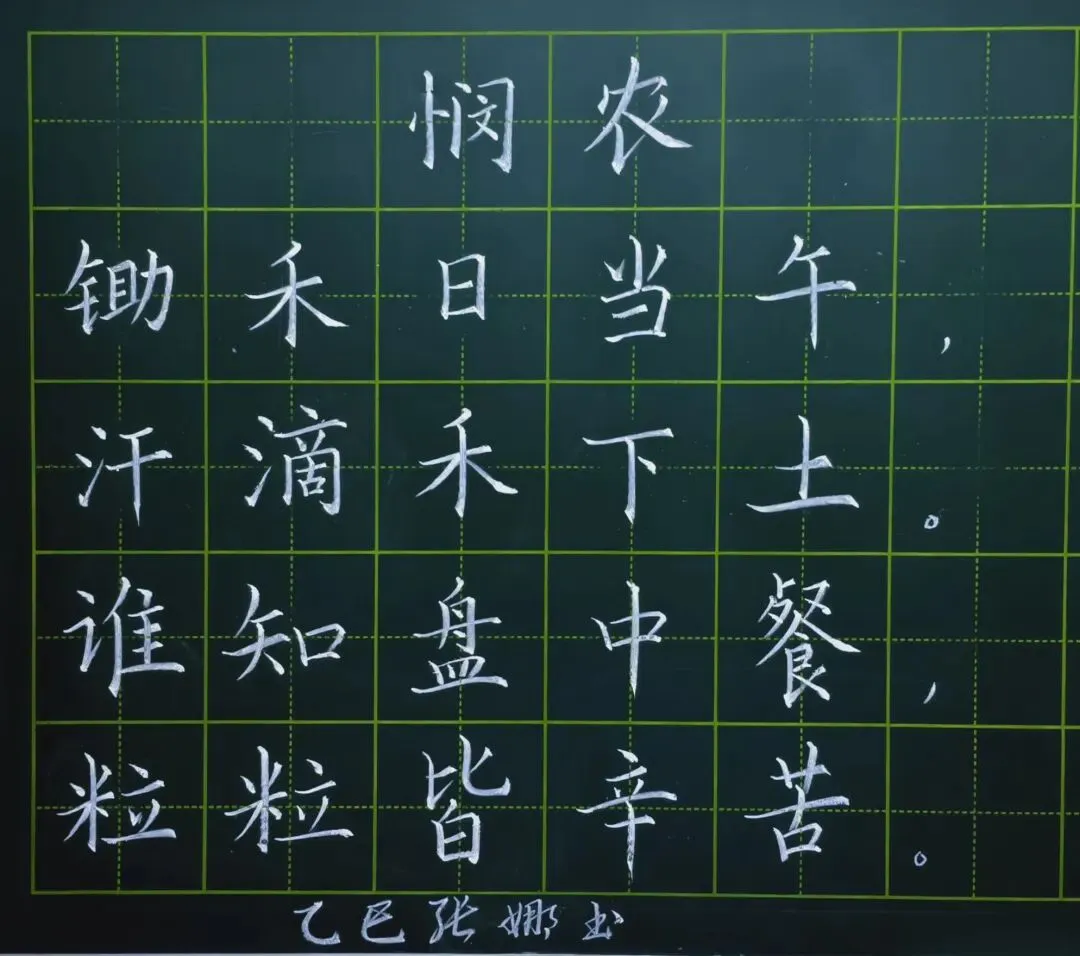 悯农
锄禾日当午，
汗滴禾下土。
谁知盘中餐，
粒粒皆辛苦。
乙巳张娜书